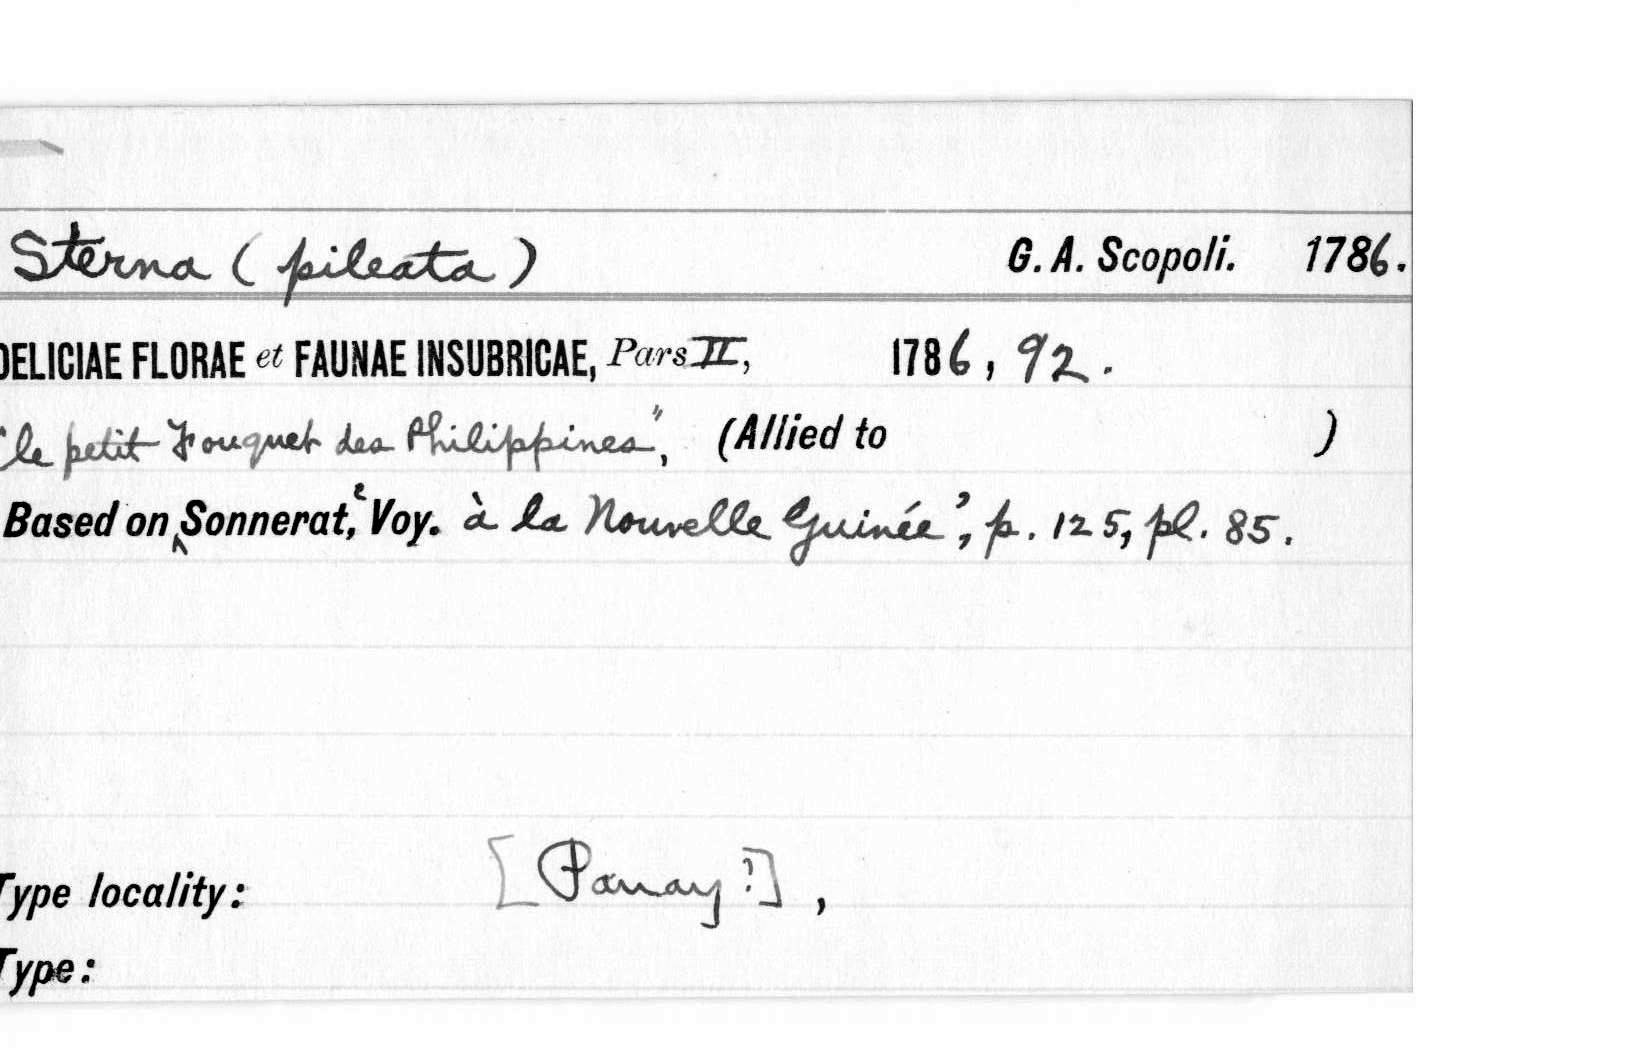 Sterna (pileata) G. A. Scopoli. 1786.
DELICIAE FLORAE et FAUNAE INSUBRICAE, Pars II, 1786, 92.
"le petit Fouquet des Philippines", (Allied to )
Based on Sonnerat, ‘Voy. à la Nouvelle Guinée’, p. 125, pl. 85.
Type locality: [Panay?],
Type: